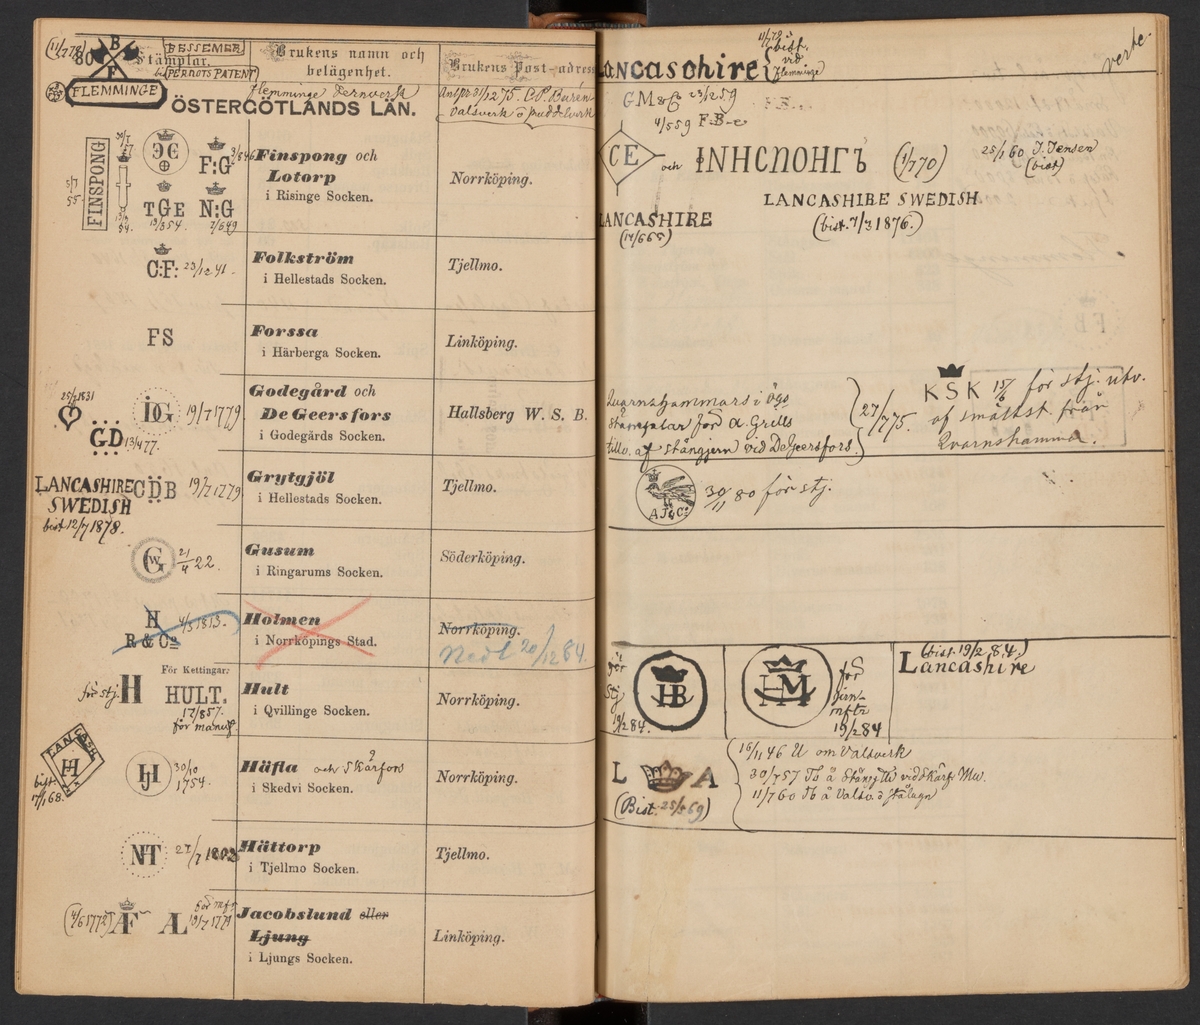 (11/7 78)
80
B
F
FLEMMINGE
Stämplar.
BESSEMER
PERNOTS PATENT
Brukens namn och
belägenhet.
Flemminge Jernverk
Brukens Post-adress
Anl. 31/12 75. C.P. Burén
Valsverk o puddelverk
ÖSTERGÖTLANDS LÄN.
FINSPONG
5/7
55
F:G
TGE
N:G
13/8 54.
2/6 49
Finspong och
Lotorp
i Risinge Socken.
Norrköping.
C:F: 23/12 41.
Folkström
i Hellestads Socken.
Tjellmo.
FS
Forssa
i Härberga Socken.
Linköping.
25/2 1831
DG 19/7 1779
GD 13/4 77.
Godegård och
De Geersfors
i Godegårds Socken.
Hallsberg W. S. B.
LANCASHIRE
SWEDISH
bist. 12/7 1878.
CDB 19/7 1779
Grytgjöl
i Hellestads Socken.
Tjellmo.
GW 21/4 22.
Gusum
i Ringarums Socken.
Söderköping.
H
R & Co 4/3 1813.
Holmen
i Norrköpings Stad.
Norrköping.
Nedl 20/12 84.
För Kettingar:
för stj. H HULT.
12/8 57.
för manuf.
Hult
i Qvillinge Socken.
Norrköping.
LANCASH
H
bist.
17/1 68.
HJ 30/10
1754.
Häfla och Skärfors
i Skedvi Socken.
Norrköping.
NT 27/7 1802
Hättorp
i Tjellmo Socken.
Tjellmo.
(4/6 1772) Æ AL 19/7 1779
Jacobslund eller
Ljung
i Ljungs Socken.
Linköping.
verte.
LANCASHIRE
11/7 78
bist.
vid
Flemminge
GM & C 23/2 59
4/5 59 F.B-e
CE
och ІNНСПОНГЪ (1/7 70)
25/1 60 J. Jensen
(bist)
LANCASHIRE SWEDISH
(bist. 7/3 1876.)
LANCASHIRE
(14/6 65)
Qvarnshammars i Ögo
stämplar för A. Grills
tillv. af stångjern vid De Geersfors.
27/7 75.
KSK 15/6 för stj. utv.
af smältst från
Qvarnshammar.
AJ & Co
30/11 80 för stj.
för
Stj
19/2 84.
HB
HM
för
jern-
mftr
19/2 84
(bist. 19/2 84.)
Lancashire
L A
(Bist. 25/5 69)
16/11 46 U om Valsverk
30/7 57 Tb å Stångjth vid Skärfs Mw.
11/7 60 Tb å Valsv. o stålugn